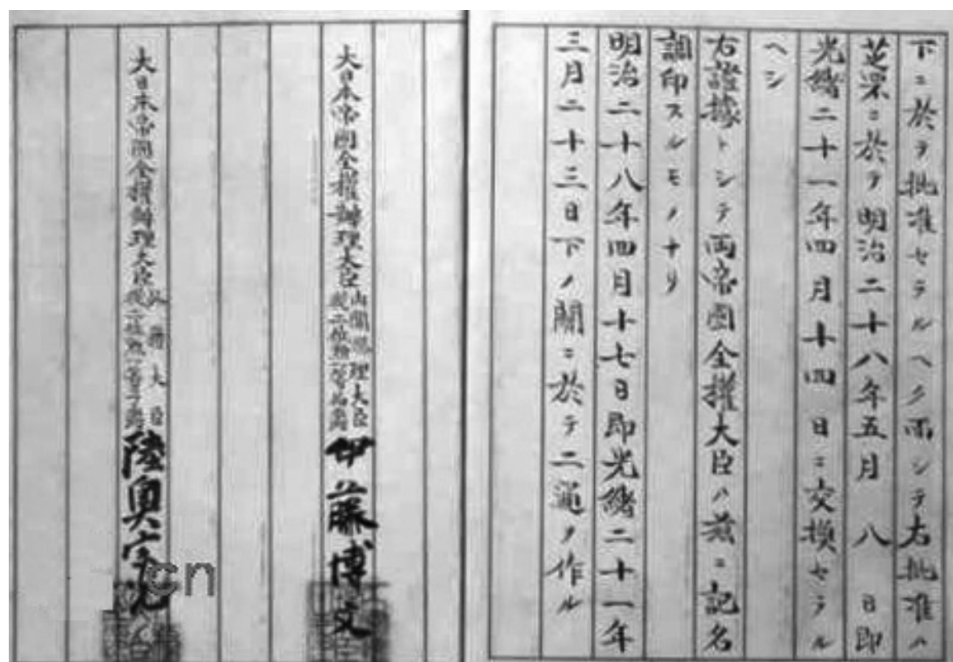 下ニ於テ批准セラルヘク而シテ右批准ハ
芝罘ニ於テ明治二十八年五月八日即
光緒二十一年四月十四日ニ交換セラル
ヘシ
右證據トシテ両帝國全權大臣ハ茲ニ記名
調印スルモノナリ
明治二十八年四月十七日即光緒二十一年
三月二十三日下ノ關ニ於テ二通ヲ作ル
大日本帝國全權辦理大臣
内閣總理大臣
從二位勲一等伯爵
伊藤博文
大日本帝國全權辦理大臣
外務大臣
從二位勲一等子爵
陸奥宗光
cn